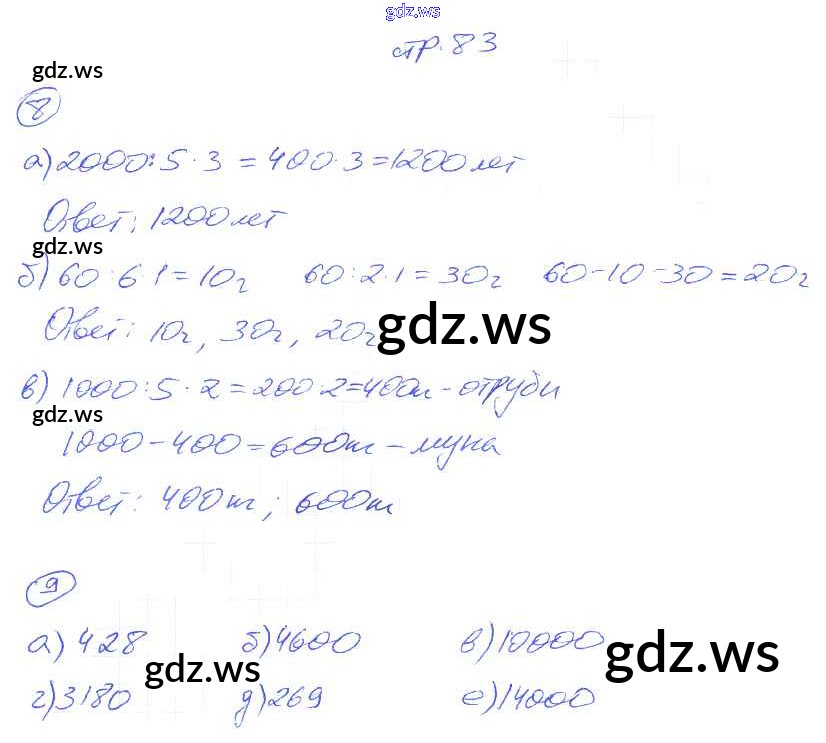 gdz.ws
стр. 83
gdz.ws
8
а) 2000 : 5 · 3 = 400 · 3 = 1200 лет
Ответ: 1200 лет
gdz.ws
б) 60 : 6 · 1 = 10г 60 : 2 · 1 = 30г 60 - 10 - 30 = 20г
Ответ: 10г, 30г, 20г
gdz.ws
в) 1000 : 5 · 2 = 200 · 2 = 400т - отруби
gdz.ws
1000 - 400 = 600т - мука
Ответ: 400т; 600т
9
а) 428 б) 4600 в) 10000
gdz.ws gdz.ws
г) 3180 д) 269 е) 14000